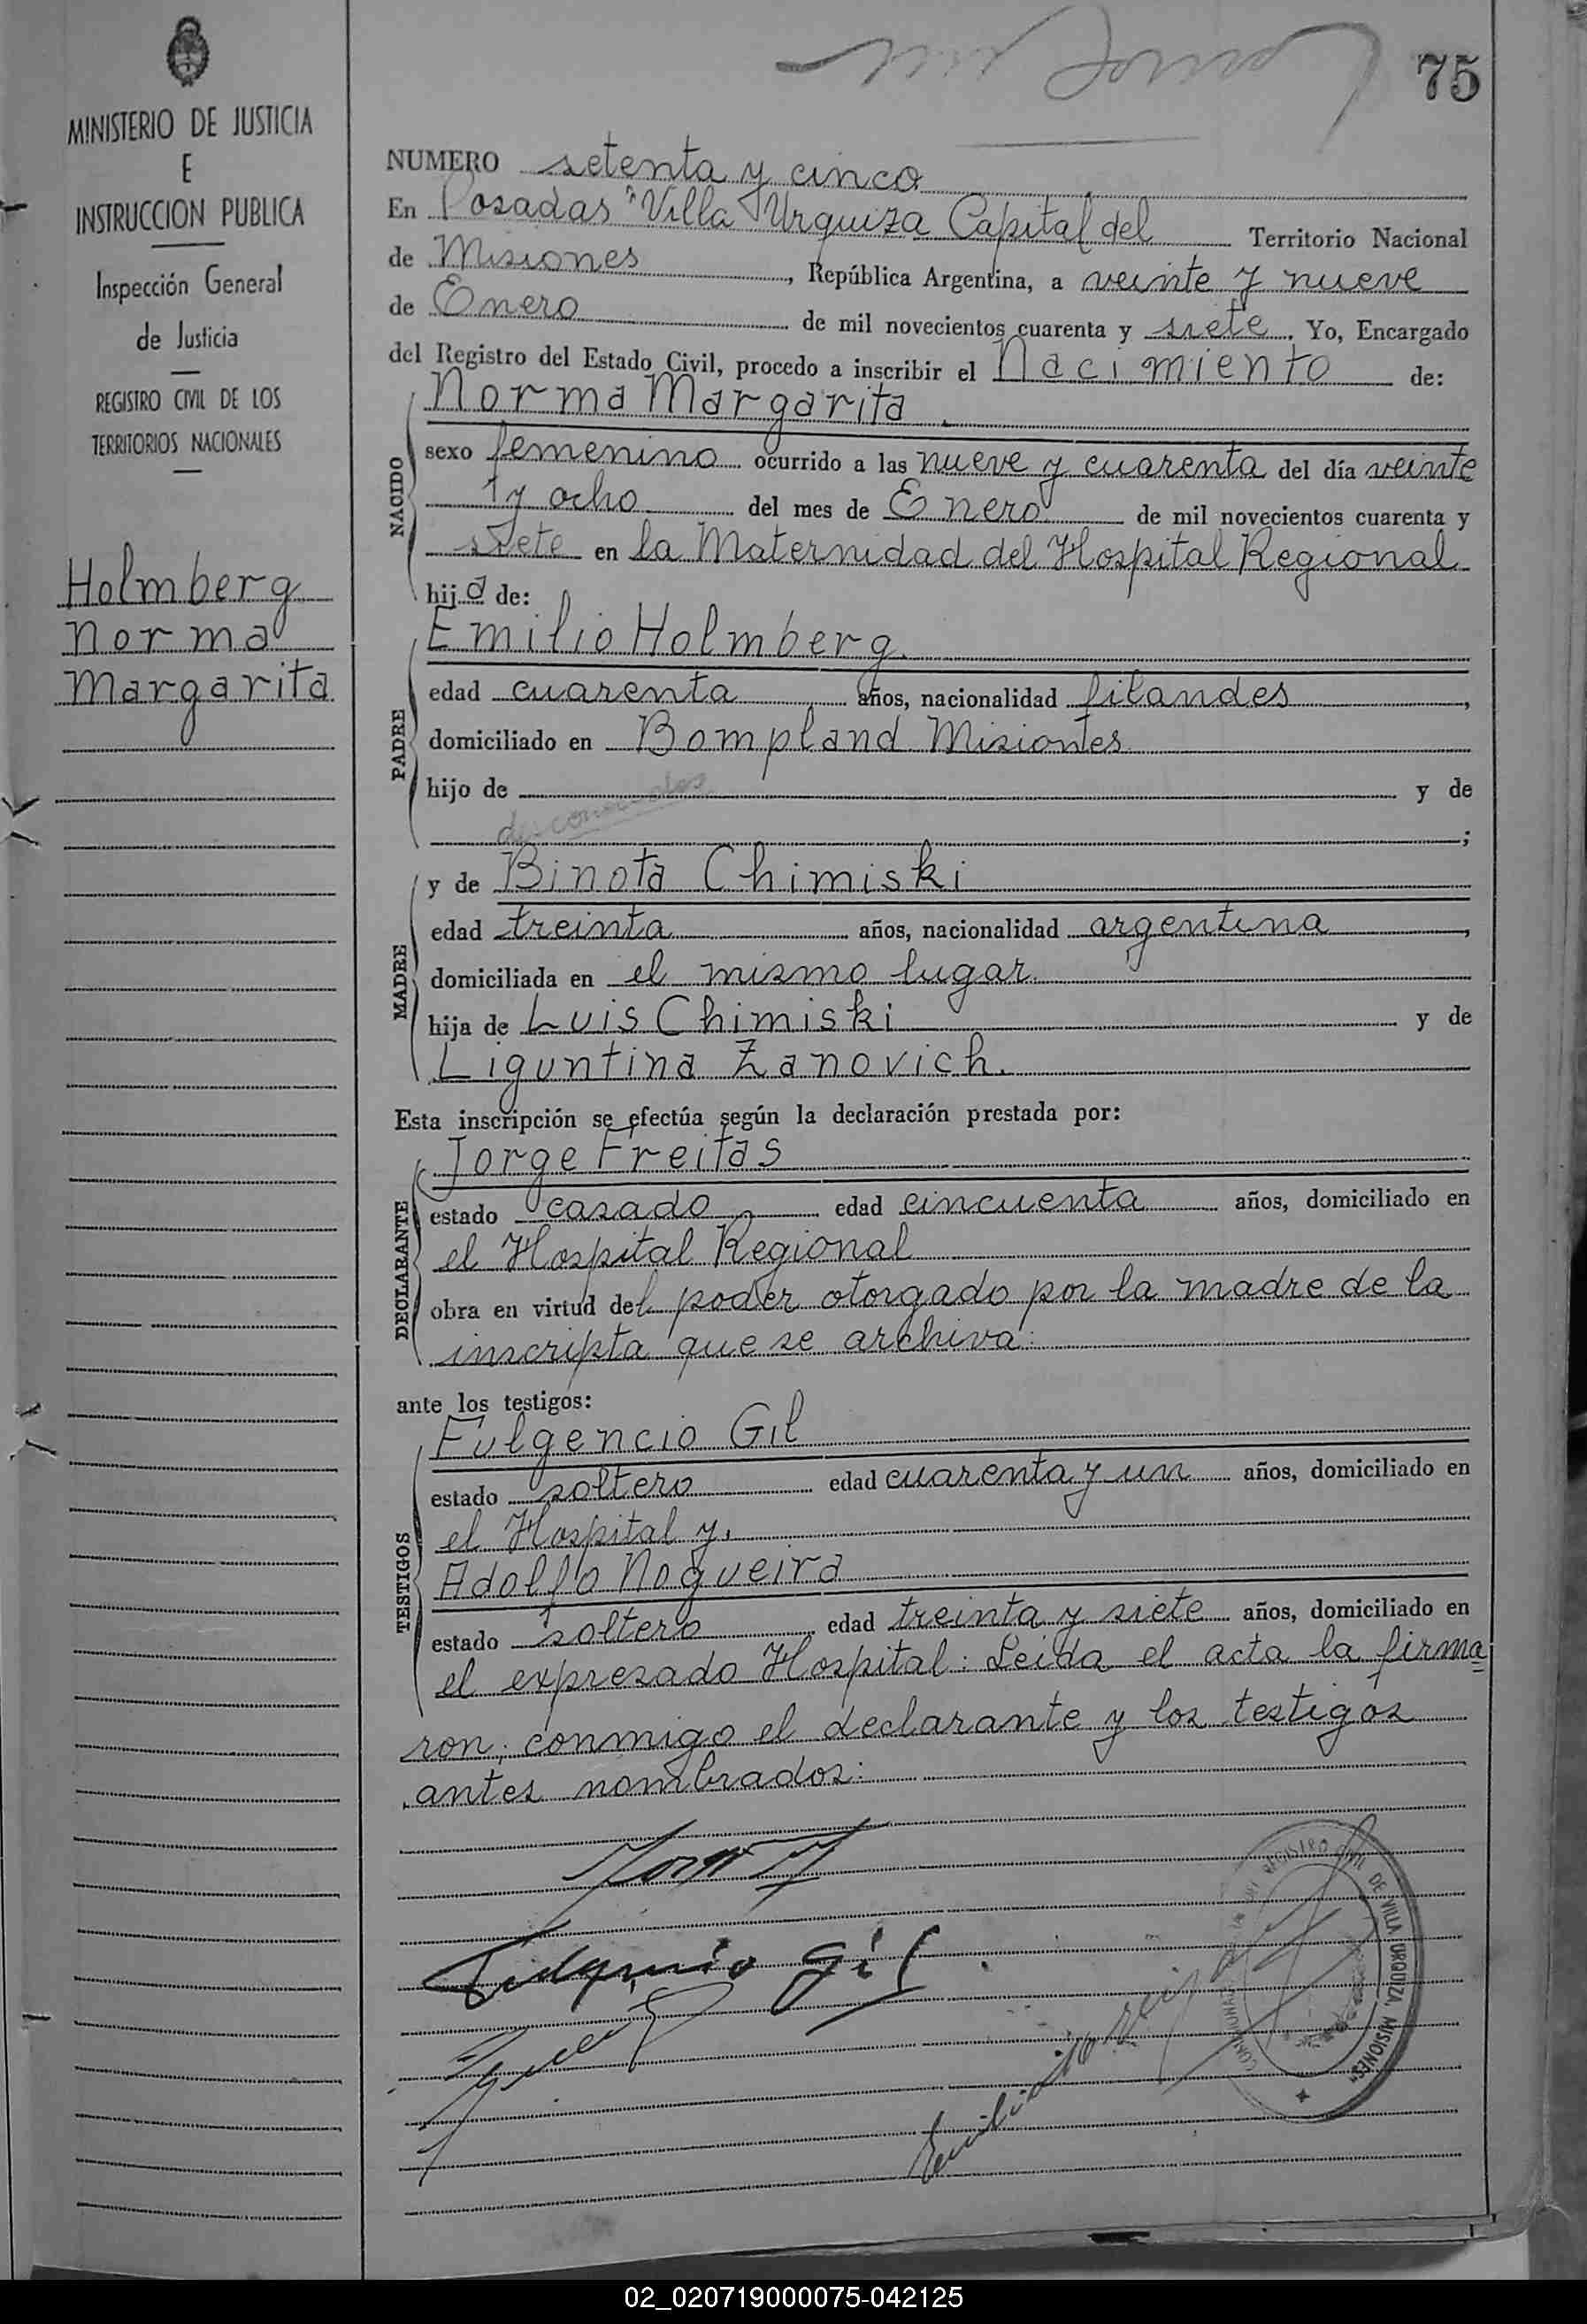 MINISTERIO DE JUSTICIA
E
INSTRUCCION PUBLICA
Inspección General
de Justicia
REGISTRO CIVIL DE LOS
TERRITORIOS NACIONALES
Holmberg
Norma
Margarita
75
NUMERO setenta y cinco
En Posadas "Villa Urquiza Capital del Territorio Nacional
de Misiones, República Argentina, a veinte y nueve
de Enero de mil novecientos cuarenta y siete. Yo, Encargado
del Registro del Estado Civil, procedo a inscribir el Nacimiento de:
NACIDO
Norma Margarita
sexo femenino ocurrido a las nueve y cuarenta del día veinte
y ocho del mes de Enero de mil novecientos cuarenta y
siete en la Maternidad del Hospital Regional
hija de:
PADRE
Emilio Holmberg.
edad cuarenta años, nacionalidad filandes,
domiciliado en Bompland Misiones
hijo de y de
;
MADRE
y de Binota Chimiski
edad treinta años, nacionalidad argentina,
domiciliada en el mismo lugar
hija de Luis Chimiski y de
Liguntina Zanovich.
Esta inscripción se efectúa según la declaración prestada por:
DECLARANTE
Jorge Freitas
estado casado edad cincuenta años, domiciliado en
el Hospital Regional
obra en virtud del poder otorgado por la madre de la
inscripta que se archiva:
ante los testigos:
TESTIGOS
Fulgencio Gil
estado soltero edad cuarenta y un años, domiciliado en
el Hospital y.
Adolfo Nogueira
estado soltero edad treinta y siete años, domiciliado en
el expresado Hospital: Leida el acta la firma=
ron, conmigo el declarante y los testigos
antes nombrados:
Fulgencio Gil
REGISTRO CIVIL DE VILLA URQUIZA, MISIONES
02_020719000075-042125